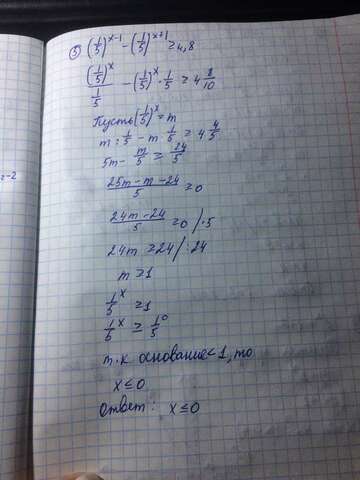 3) (1/5)^(x-1) - (1/5)^(x+1) ≥ 4,8
(1/5)^x / (1/5) - (1/5)^x · 1/5 ≥ 4 8/10
Пусть (1/5)^x = m
m : 1/5 - m 1/5 ≥ 4 4/5
5m - m/5 ≥ 24/5
(25m - m - 24)/5 ≥ 0
(24m - 24)/5 ≥ 0 /·5
24m ≥ 24 /:24
m ≥ 1
1/5^x ≥ 1
1/5^x ≥ 1/5^0
т.к основание < 1, то
x ≤ 0
Ответ: x ≤ 0
=-2